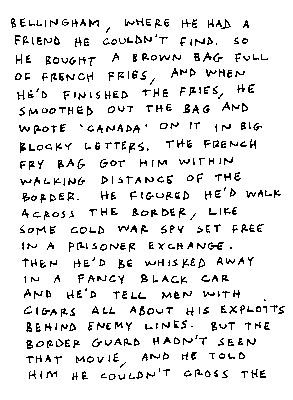 BELLINGHAM, WHERE HE HAD A
FRIEND HE COULDN'T FIND. SO
HE BOUGHT A BROWN BAG FULL
OF FRENCH FRIES, AND WHEN
HE'D FINISHED THE FRIES, HE
SMOOTHED OUT THE BAG AND
WROTE 'CANADA' ON IT IN BIG
BLOCKY LETTERS. THE FRENCH
FRY BAG GOT HIM WITHIN
WALKING DISTANCE OF THE
BORDER. HE FIGURED HE'D WALK
ACROSS THE BORDER, LIKE
SOME COLD WAR SPY SET FREE
IN A PRISONER EXCHANGE.
THEN HE'D BE WHISKED AWAY
IN A FANCY BLACK CAR
AND HE'D TELL MEN WITH
CIGARS ALL ABOUT HIS EXPLOITS
BEHIND ENEMY LINES. BUT THE
BORDER GUARD HADN'T SEEN
THAT MOVIE, AND HE TOLD
HIM HE COULDN'T CROSS THE